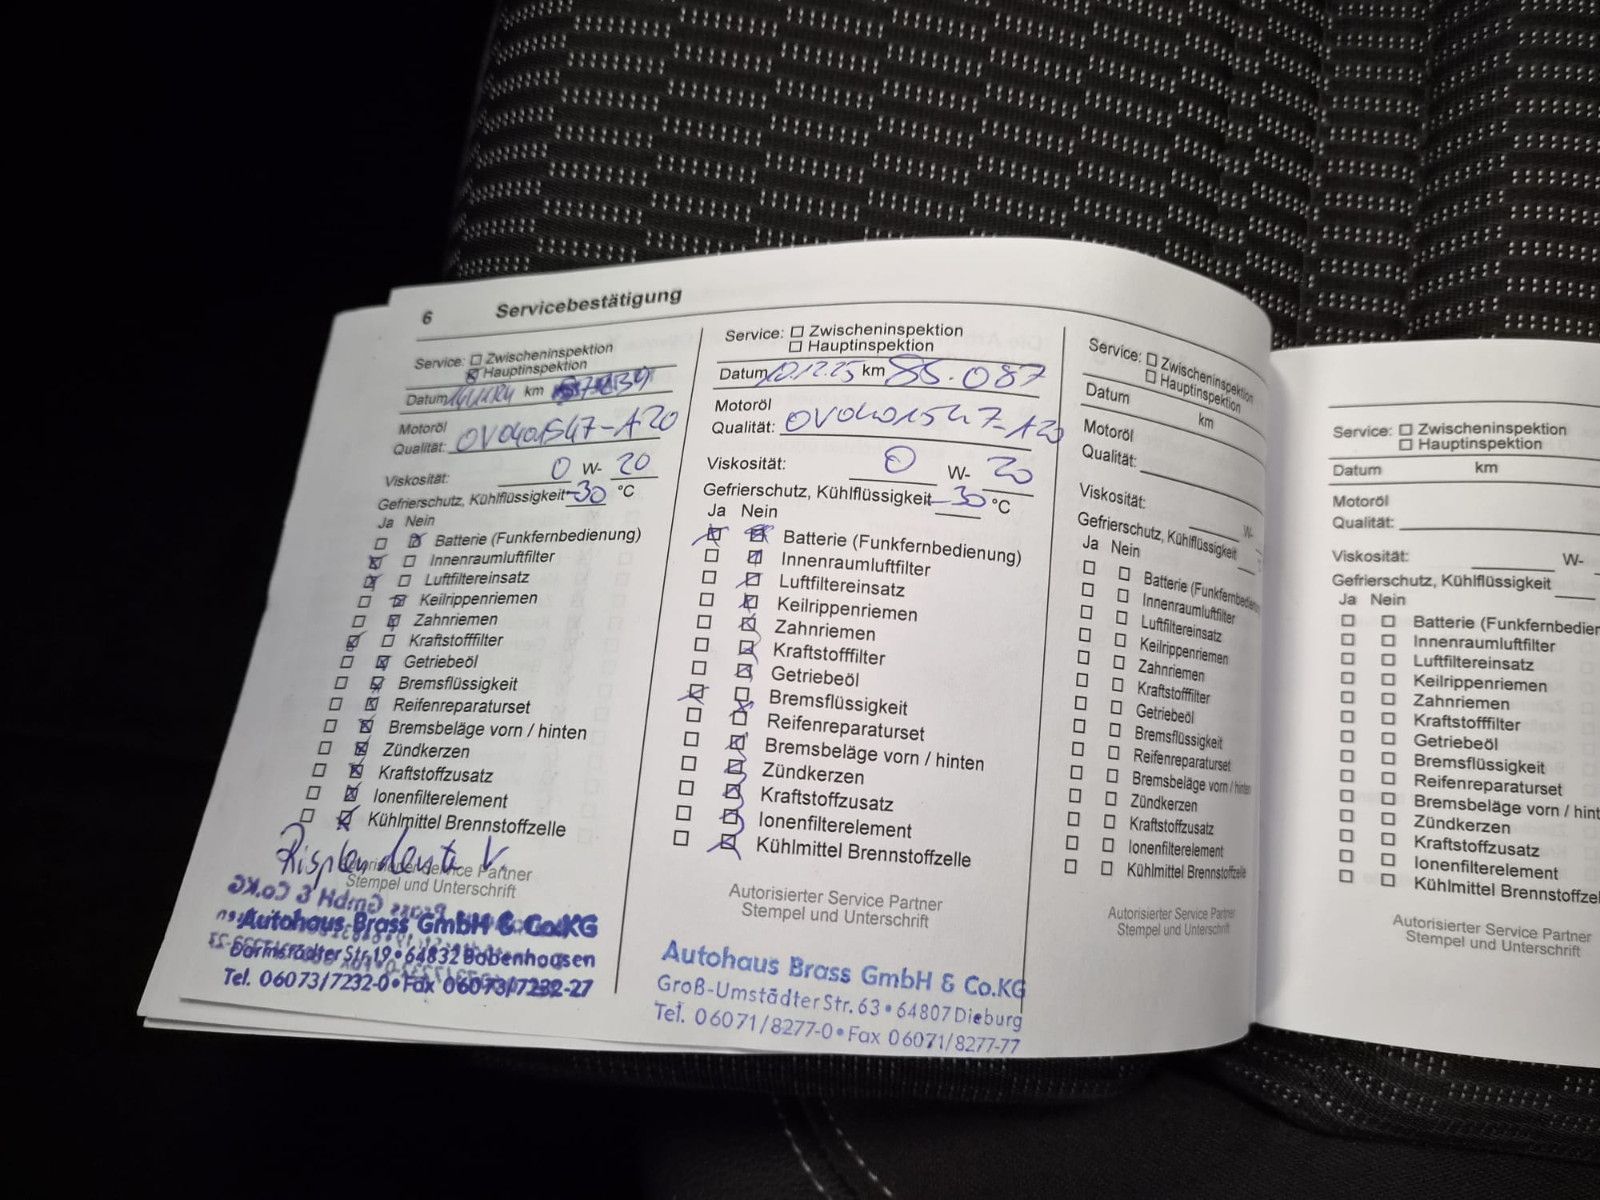 6 Servicebestätigung
Service: Zwischeninspektion
Hauptinspektion
Datum km
Motoröl
Qualität: OV0401547-A20
Viskosität: 0 W- 20
Gefrierschutz, Kühlflüssigkeit -30 °C
Ja Nein
Batterie (Funkfernbedienung)
Innenraumluftfilter
Luftfiltereinsatz
Keilrippenriemen
Zahnriemen
Kraftstofffilter
Getriebeöl
Bremsflüssigkeit
Reifenreparaturset
Bremsbeläge vorn / hinten
Zündkerzen
Kraftstoffzusatz
Ionenfilterelement
Kühlmittel Brennstoffzelle
Autorisierter Service Partner
Stempel und Unterschrift
Autohaus Brass GmbH & Co.KG
Darmstädter Str. 19 • 64832 Babenhausen
Tel. 06073/7232-0 • Fax 06073/7232-27
Service: Zwischeninspektion
Hauptinspektion
Datum 10.12.25 km 85.087
Motoröl
Qualität: OV0401547-A20
Viskosität: 0 W- 20
Gefrierschutz, Kühlflüssigkeit -30 °C
Ja Nein
Batterie (Funkfernbedienung)
Innenraumluftfilter
Luftfiltereinsatz
Keilrippenriemen
Zahnriemen
Kraftstofffilter
Getriebeöl
Bremsflüssigkeit
Reifenreparaturset
Bremsbeläge vorn / hinten
Zündkerzen
Kraftstoffzusatz
Ionenfilterelement
Kühlmittel Brennstoffzelle
Autorisierter Service Partner
Stempel und Unterschrift
Autohaus Brass GmbH & Co.KG
Groß-Umstädter Str. 63 • 64807 Dieburg
Tel. 06071/8277-0 • Fax 06071/8277-77
Service: Zwischeninspektion
Hauptinspektion
Datum km
Motoröl
Qualität:
Viskosität: W-
Gefrierschutz, Kühlflüssigkeit
Ja Nein
Batterie (Funkfernbedienung
Innenraumluftfilter
Luftfiltereinsatz
Keilrippenriemen
Zahnriemen
Kraftstofffilter
Getriebeöl
Bremsflüssigkeit
Reifenreparaturset
Bremsbeläge vorn / hinten
Zündkerzen
Kraftstoffzusatz
Ionenfilterelement
Kühlmittel Brennstoffzelle
Autorisierter Service Partner
Stempel und Unterschrift
Service: Zwischeninspektion
Hauptinspektion
Datum km
Motoröl
Qualität:
Viskosität: W-
Gefrierschutz, Kühlflüssigkeit
Ja Nein
Batterie (Funkfernbedien
Innenraumluftfilter
Luftfiltereinsatz
Keilrippenriemen
Zahnriemen
Kraftstofffilter
Getriebeöl
Bremsflüssigkeit
Reifenreparaturset
Bremsbeläge vorn / hint
Zündkerzen
Kraftstoffzusatz
Ionenfilterelement
Kühlmittel Brennstoffzel
Autorisierter Service Partner
Stempel und Unterschrift